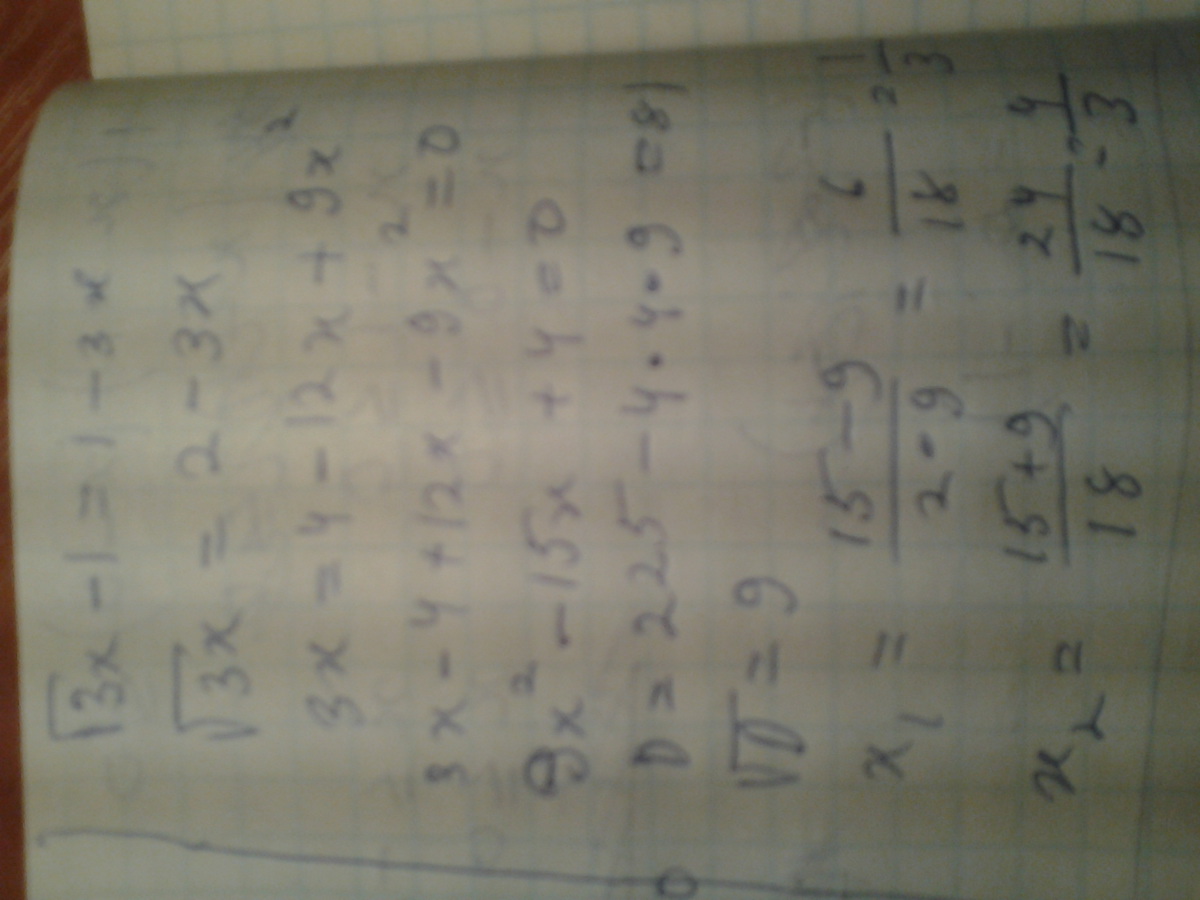 √3x - 1 = 1 - 3x
√3x = 2 - 3x
3x = 4 - 12x + 9x²
3x - 4 + 12x - 9x² = 0
9x² - 15x + 4 = 0
D = 225 - 4 · 4 · 9 = 81
√D = 9
x₁ = (15 - 9)/(2 · 9) = 6/18 = 1/3
x₂ = (15 + 9)/18 = 24/18 = 4/3